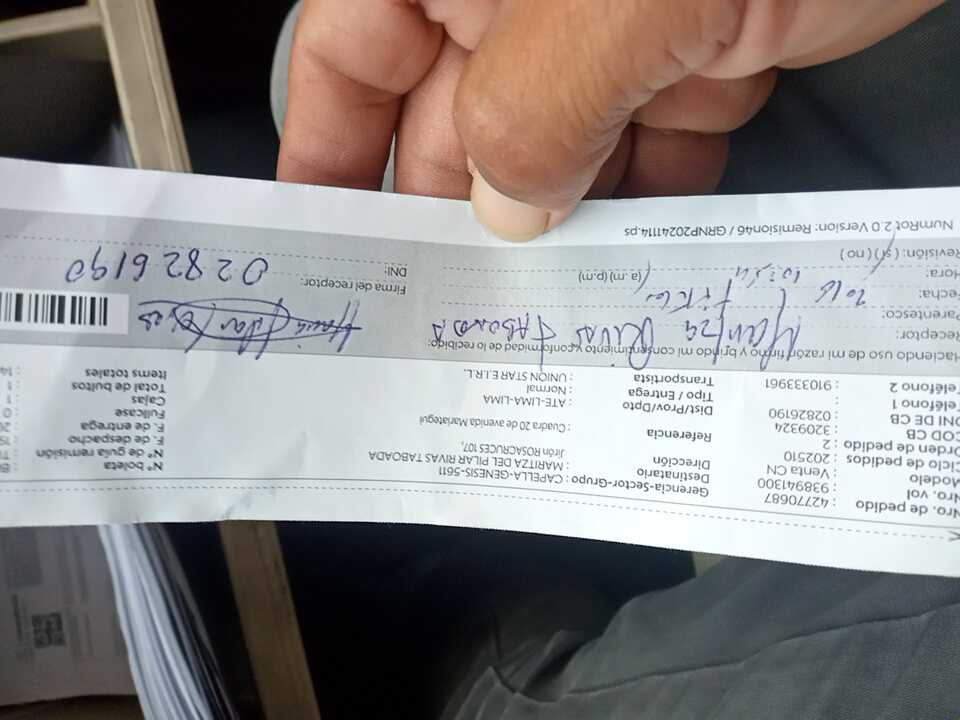 Nro. de pedido : 42770687
Nro. vol : 938941300
Modelo : Venta CN
Ciclo de pedidos : 202510
Orden de pedido : 2
COD CB : 3209324
DNI DE CB : 02826190
Teléfono 1 :
Teléfono 2 : 910333961
Gerencia-Sector-Grupo : CAPELLA-GENESIS-5611
Destinatario : MARITZA DEL PILAR RIVAS TABOADA
Dirección Jirón ROSACRUCES 107,
Referencia : Cuadra 20 de avenida Mariategui
Dist/Prov/Dpto : ATE-LIMA-LIMA
Tipo / Entrega : Normal
Transportista : UNION STAR E.I.R.L.
N° boleta
N° de guía de remisión
F. de despacho
F. de entrega
Fullcase : 0
Cajas : 1
Total de bultos : 1
Items totales : 14
Haciendo uso de mi razón firmo y brindo mi consentimiento y conformidad de lo recibido:
Receptor: Maritza Rivas Taboada
Parentesco:
Fecha:
Hora: (a.m) (p.m)
Revisión: ( si ) ( no )
Firma del receptor:
DNI: 02826190
NumRot 2.0 Version: Remision46 / GRNP20241114.ps